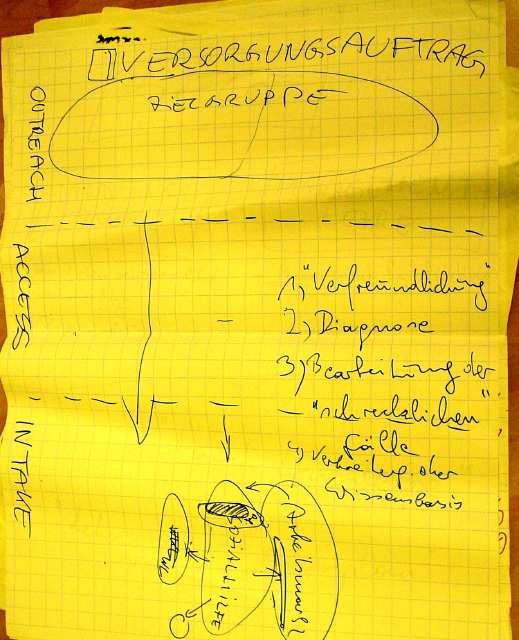 VERSORGUNGSAUFTRAG
ZIELGRUPPE
OUTREACH
ACCESS
INTAKE
1) "Verfreundlichung"
2) Diagnose
3) Bearbeitung der
"schrecklichen"
Fälle
4) Verbreitung der
Wissensbasis
SOZIALHILFE